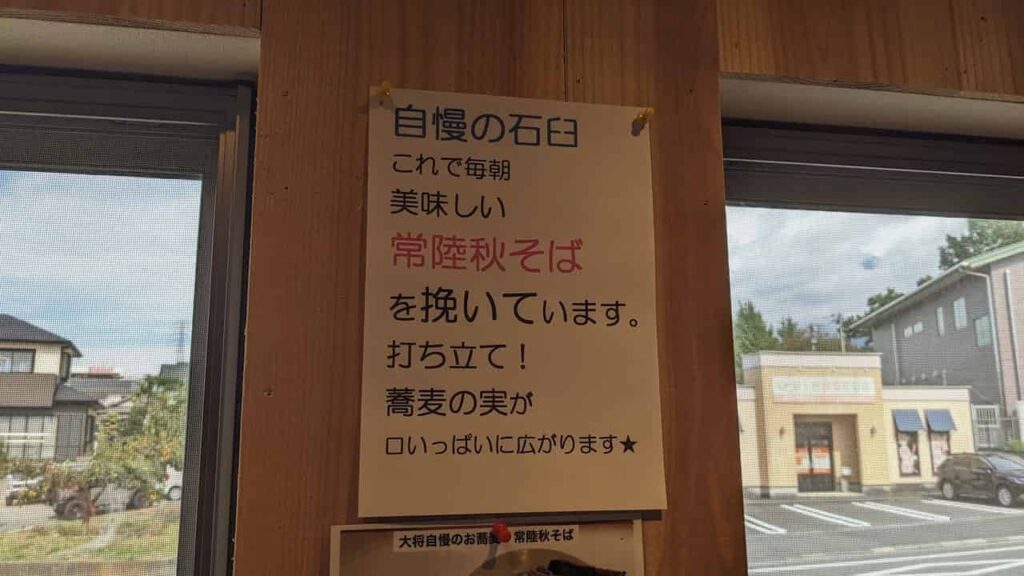 自慢の石臼
これで毎朝
美味しい
常陸秋そば
を挽いています。
打ち立て！
蕎麦の実が
口いっぱいに広がります★
大将自慢のお蕎麦 常陸秋そば